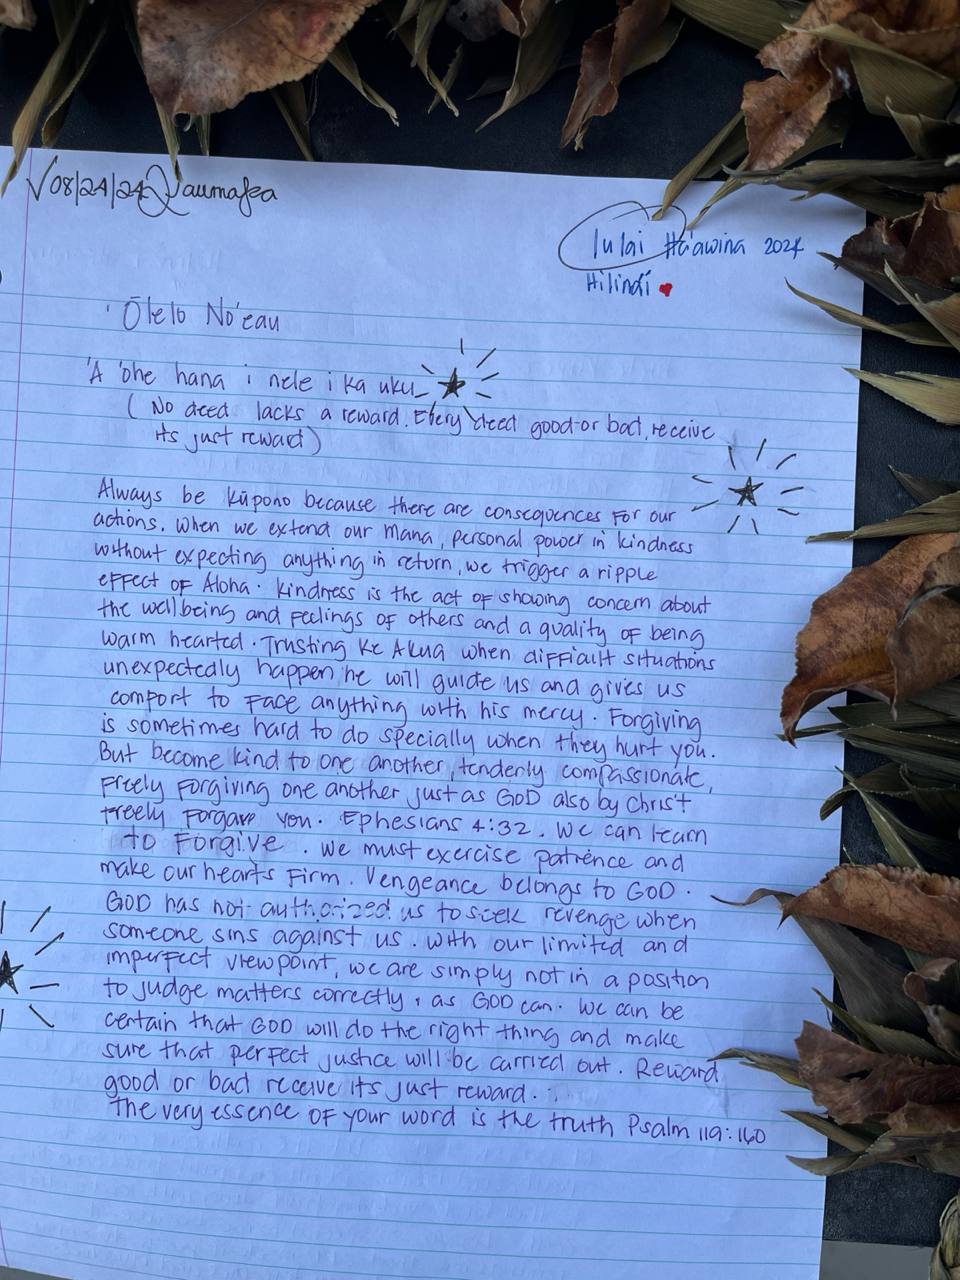 √08/24/24 Qaumafea
Iulai Ha'awina 2024
Hilindi
'Ōlelo No'eau
'A 'ohe hana i nele i ka uku
( No deed lacks a reward. Every deed good or bad, receive
its just reward)
Always be kūpono because there are consequences for our
actions. When we extend our mana, personal power in kindness
without expecting anything in return, we trigger a ripple
effect of Aloha. Kindness is the act of showing concern about
the wellbeing and feelings of others and a quality of being
warm hearted. Trusting Ke Akua when difficult situations
unexpectedly happen, he will guide us and gives us
comfort to face anything with his mercy. Forgiving
is sometimes hard to do specially when they hurt you.
But become kind to one another, tenderly compassionate,
freely forgiving one another just as GOD also by Christ
freely forgave you. Ephesians 4:32. We can learn
to Forgive. We must exercise patience and
make our hearts firm. Vengeance belongs to GOD.
GOD has not authorized us to seek revenge when
someone sins against us. With our limited and
imperfect viewpoint, we are simply not in a position
to judge matters correctly, as GOD can. We can be
certain that GOD will do the right thing and make
sure that perfect justice will be carried out. Reward
good or bad receive its just reward.
The very essence of your word is the truth Psalm 119:160